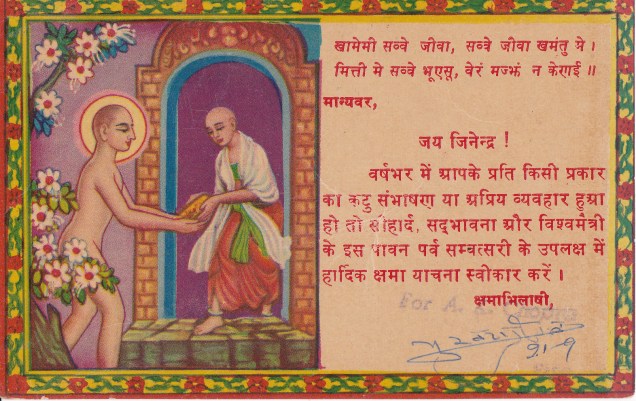 खामेमी सव्वे जीवा, सव्वे जीवा खमंतु मे।
मित्ती मे सव्वे भूएसू, वेरं मज्झं न केणई॥
मान्यवर,
जय जिनेन्द्र !
वर्षभर में आपके प्रति किसी प्रकार
का कटु संभाषण या अप्रिय व्यवहार हुआ
हो तो सौहार्द, सद्भावना और विश्वमैत्री
के इस पावन पर्व सम्वत्सरी के उपलक्ष में
हार्दिक क्षमा याचना स्वीकार करें।
क्षमाभिलाषी,
For A.